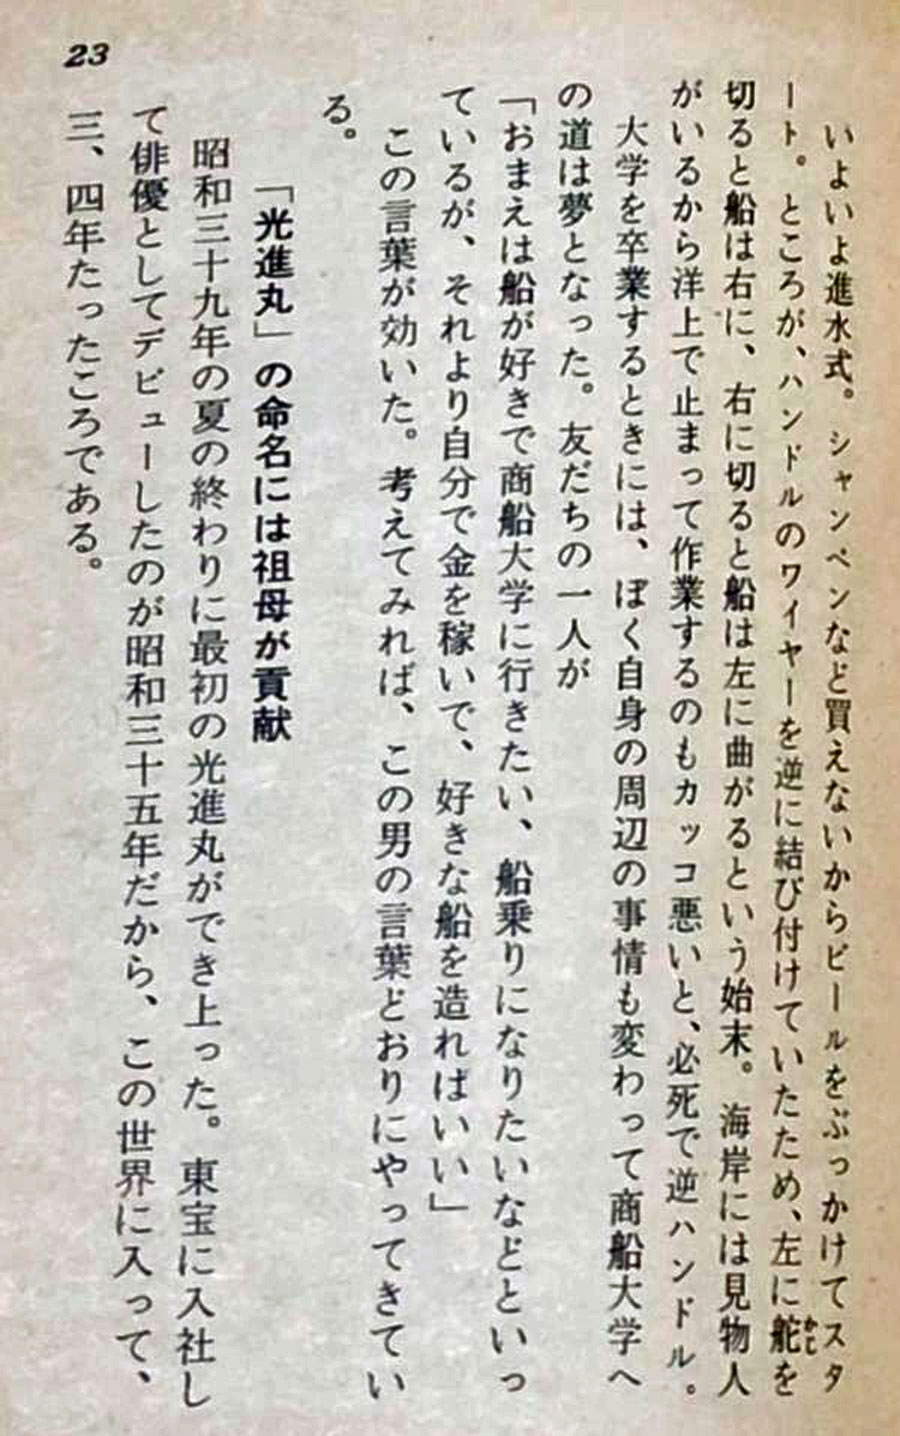 23
いよいよ進水式。シャンペンなど買えないからビールをぶっかけてスタ
ート。ところが、ハンドルのワイヤーを逆に結び付けていたため、左に舵を
かじ
切ると船は右に、右に切ると船は左に曲がるという始末。海岸には見物人
がいるから洋上で止まって作業するのもカッコ悪いと、必死で逆ハンドル。
大学を卒業するときには、ぼく自身の周辺の事情も変わって商船大学へ
の道は夢となった。友だちの一人が
「おまえは船が好きで商船大学に行きたい、船乗りになりたいなどといっ
ているが、それより自分で金を稼いで、好きな船を造ればいい」
この言葉が効いた。考えてみれば、この男の言葉どおりにやってきてい
る。
「光進丸」の命名には祖母が貢献
昭和三十九年の夏の終わりに最初の光進丸ができ上った。東宝に入社し
て俳優としてデビューしたのが昭和三十五年だから、この世界に入って、
三、四年たったころである。